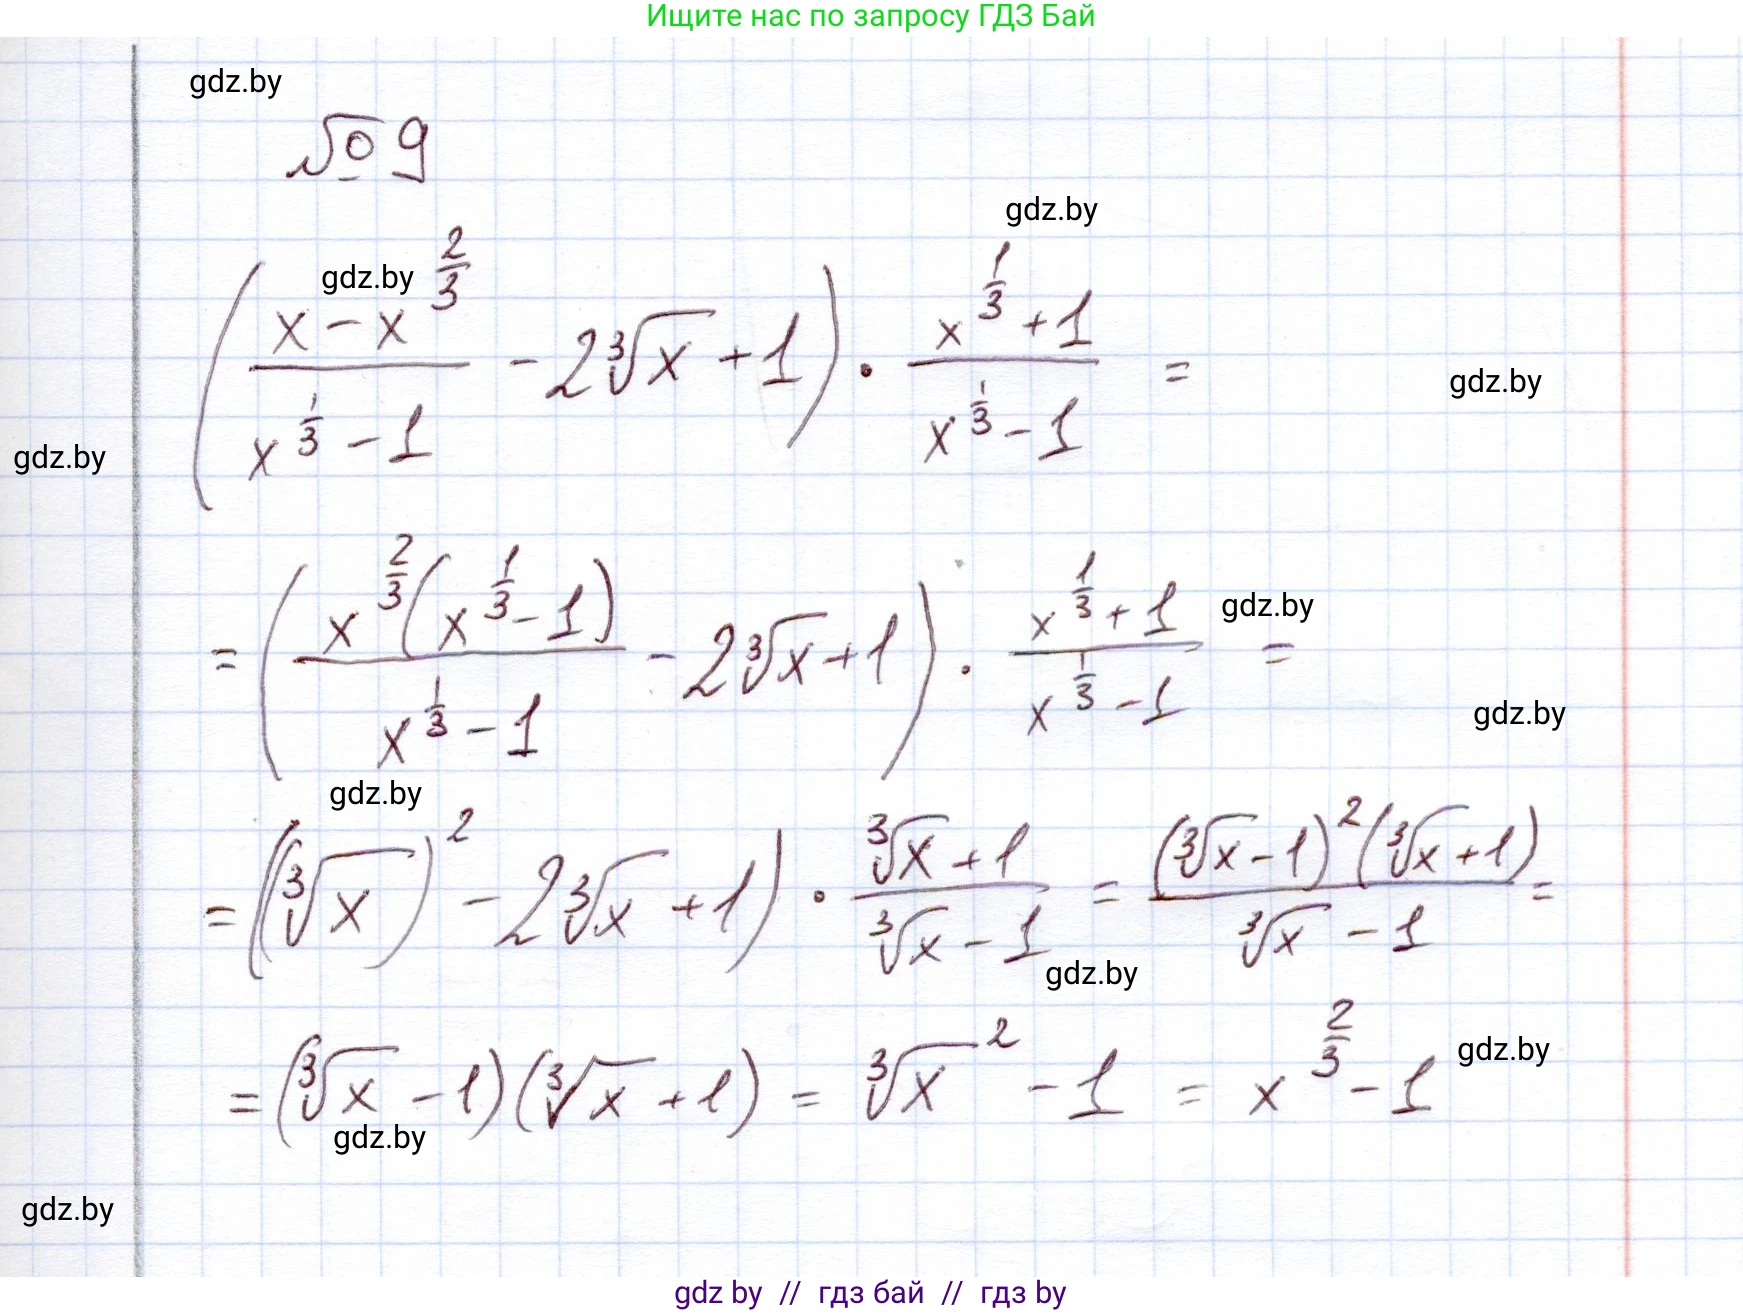 Ищите нас по запросу ГДЗ Бай
gdz.by
№ 9
gdz.by
gdz.by
(\frac{x - x^{\frac{2}{3}}}{x^{\frac{1}{3}} - 1} - 2\sqrt[3]{x} + 1) \cdot \frac{x^{\frac{1}{3}} + 1}{x^{\frac{1}{3}} - 1} =
gdz.by
gdz.by
= (\frac{x^{\frac{2}{3}}(x^{\frac{1}{3}} - 1)}{x^{\frac{1}{3}} - 1} - 2\sqrt[3]{x} + 1) \cdot \frac{x^{\frac{1}{3}} + 1}{x^{\frac{1}{3}} - 1} =
gdz.by
gdz.by
gdz.by
= ((\sqrt[3]{x})^2 - 2\sqrt[3]{x} + 1) \cdot \frac{\sqrt[3]{x} + 1}{\sqrt[3]{x} - 1} = \frac{(\sqrt[3]{x} - 1)^2(\sqrt[3]{x} + 1)}{\sqrt[3]{x} - 1} =
gdz.by
= (\sqrt[3]{x} - 1)(\sqrt[3]{x} + 1) = \sqrt[3]{x}^2 - 1 = x^{\frac{2}{3}} - 1
gdz.by
gdz.by
gdz.by
gdz by // гдз бай // гдз by